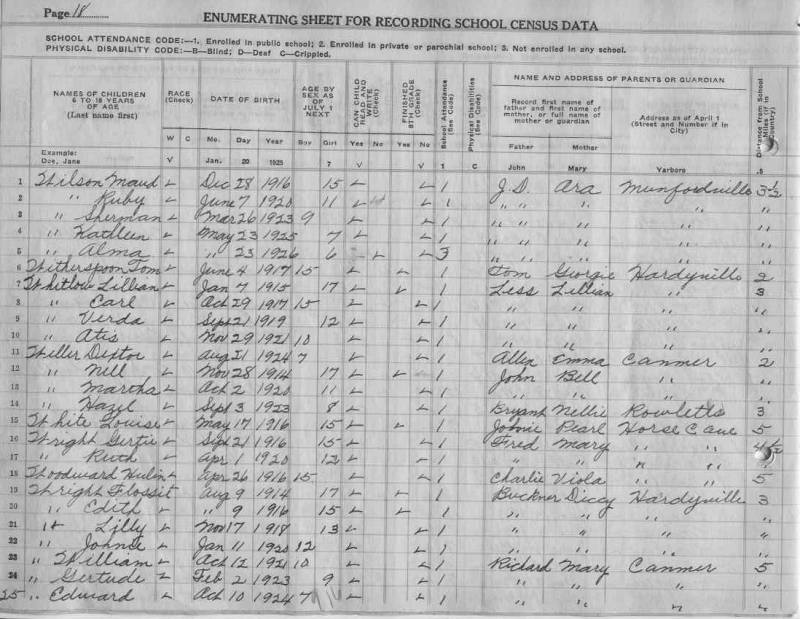 Page 18
ENUMERATING SHEET FOR RECORDING SCHOOL CENSUS DATA
SCHOOL ATTENDANCE CODE:—1. Enrolled in public school; 2. Enrolled in private or parochial school; 3. Not enrolled in any school.
PHYSICAL DISABILITY CODE:—B—Blind; D—Deaf C—Crippled.
NAMES OF CHILDREN 6 TO 18 YEARS OF AGE (Last name first)
RACE (Check) W C
DATE OF BIRTH No. Day Year
AGE BY SEX AS OF JULY 1 NEXT Boy Girl
CAN CHILD READ AND WRITE (Check) Yes No
FINISHED 8TH GRADE (Check) Yes No
School Attendance (See Code)
Physical Disabilities (See Code)
NAME AND ADDRESS OF PARENTS OR GUARDIAN
Record first name of father and first name of mother, or full name of mother or guardian
Father Mother
Address as of April 1 (Street and Number if in City)
Distance from School Miles (if in Country)
Example:
Doe, Jane V Jan. 20 1925 7 V V 1 C John Mary Yarboro .5
1 Wilson Maud Dec 28 1916 15 1 J.D. Ara Munfordville 3½
2 " Ruby June 7 1920 11 1 " " " " "
3 " Sherman Mar 26 1923 9 1 " " " " "
4 " Kathleen May 23 1925 7 1 " " " " "
5 " Alma " 23 1926 6 3 " " " " "
6 Witherspoon Tom June 4 1917 15 1 Tom Georgie Hardyville 2
7 Whitlow Lillian Jan 7 1915 17 1 Less Lillian " 3
8 " Carl Oct 29 1917 15 1 " " " "
9 " Verda Sept 21 1919 12 1 " " " "
10 " Atis Nov 29 1921 10 1 " " " "
11 Willer Dextor Aug 21 1924 7 1 Allen Emma Canmer 2
12 " Nell Nov 28 1914 17 1 John Bell " "
13 " Martha Oct 2 1920 11 1 " " " "
14 " Hazel Sept 3 1923 8 1 Bryant Nellie Rowletts 3
15 White Louise May 17 1916 15 1 Johnie Pearl Horse Cave 5
16 Wright Gertie Sept 21 1916 15 1 Fred Mary " " 4½
17 " Ruth Apr 1 1920 12 1 " " " " "
18 Woodward Hulin Apr 26 1916 15 1 Charlie Viola " " 5
19 Wright Flossie Aug 9 1914 17 1 Buckner Diccy Hardyville 3
20 " Edith " 9 1916 15 1 " " " "
21 " Lilly Nov 17 1918 13 1 " " " "
22 " Johnie Jan 11 1920 12 1 " " " "
23 " William Oct 12 1921 10 1 Richard Mary Canmer 5
24 " Gertrude Feb 2 1923 9 1 " " " "
25 " Edward Oct 10 1924 7 1 " " " "